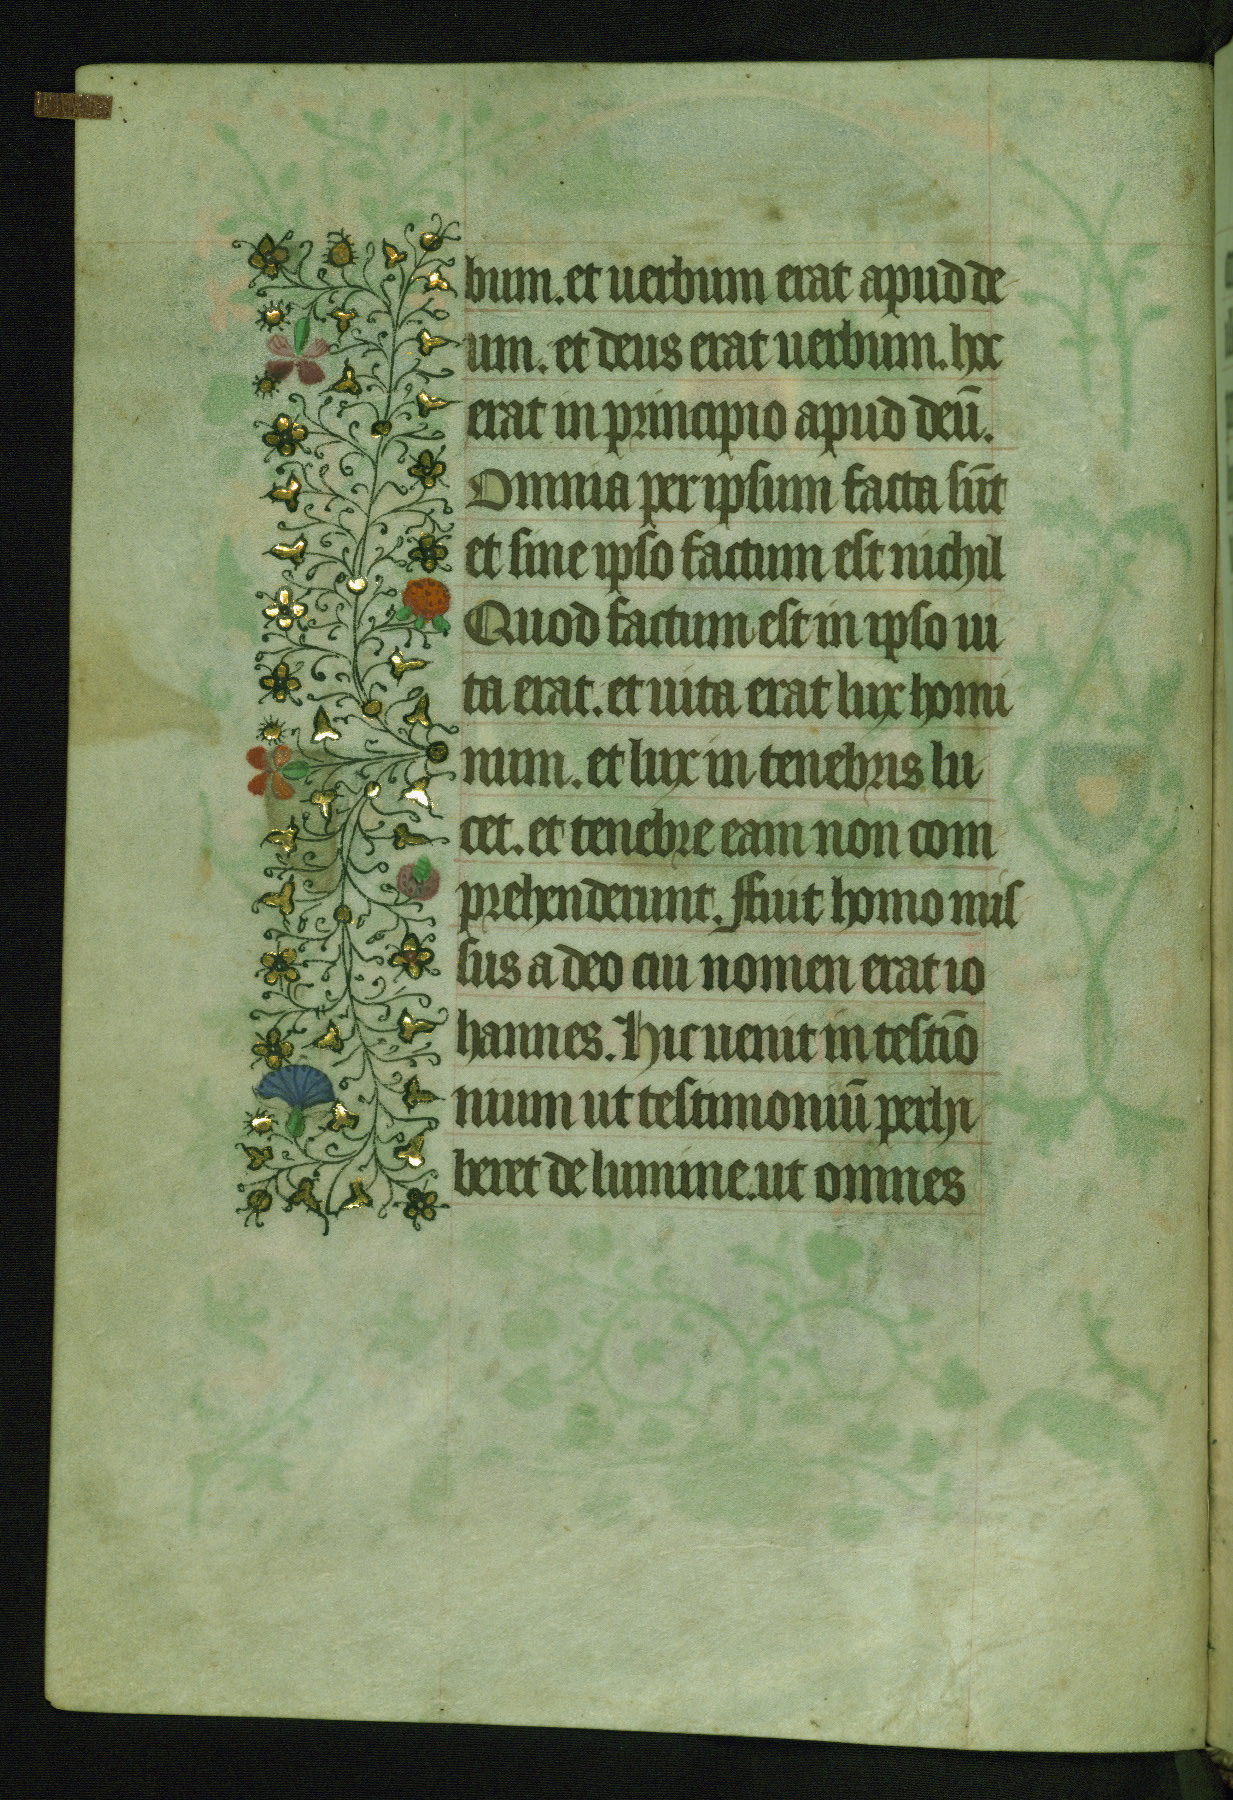 bum. et uerbum erat apud de
um. et deus erat uerbum. hoc
erat in principio apud deū.
Omnia per ipsum facta sūt
et sine ipso factum est nichil
Quod factum est in ipso ui
ta erat. et uita erat lux homi
num. et lux in tenebris lu
cet. et tenebre eam non com
prehenderunt. ffuit homo mis
sus a deo cui nomen erat io
hannes. Hic uenit in testiō
nium ut testimoniū perhi
beret de lumine. ut omnes